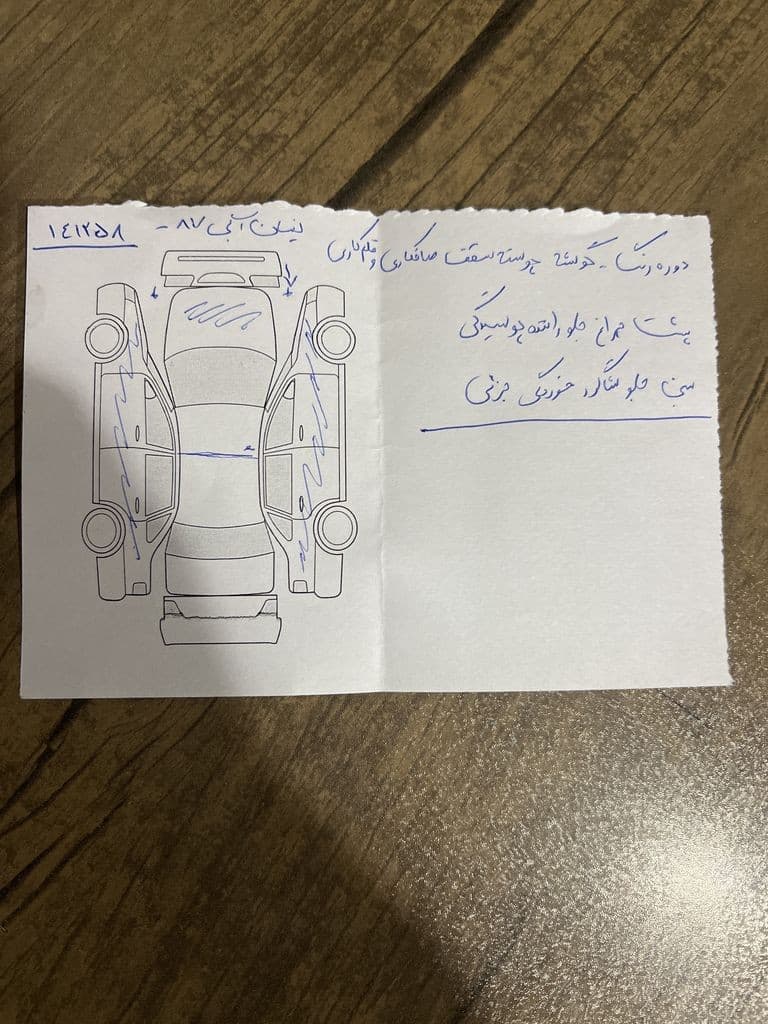 نیسان آبی ۸۷ -
۱۴۱۲۵۸
دوره رنگ - گوشه سقف صافکاری و قلم کاری
پشت چراغ جلو پوسیدگی
سینی جلو خوردگی جزئی